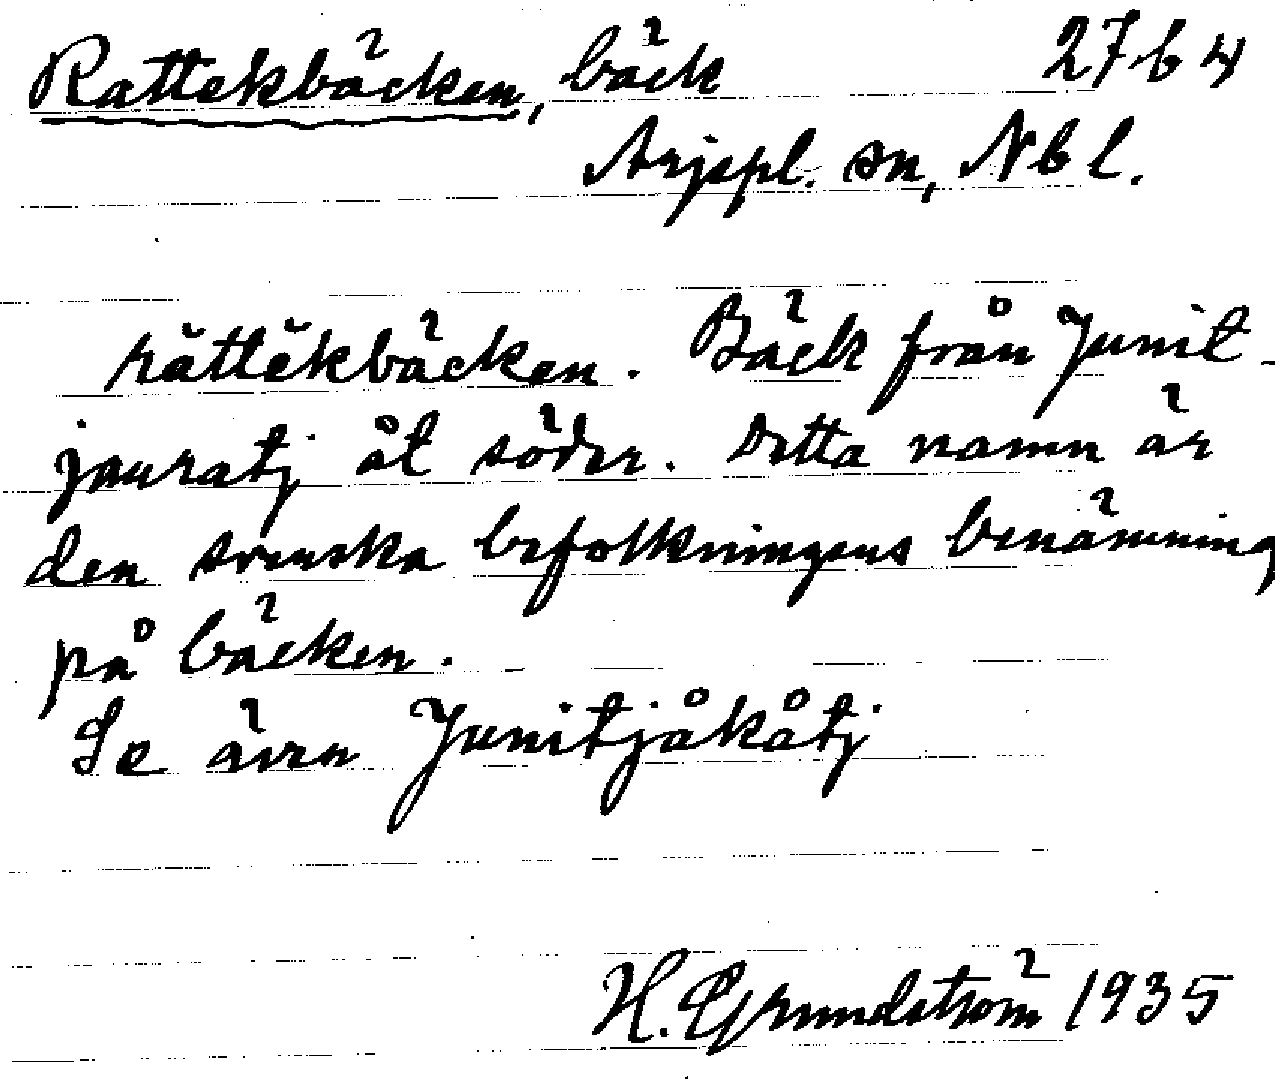 Rattekbäcken, bäck 27 b 4
Arjepl. sn, Nbl.
răttĕkbäcken. Bäck från Junit-
jauratj åt söder. Detta namn är
den svenska befolkningens benämning
på bäcken.
Se även Junitjåkåtj
H. Grundström 1935